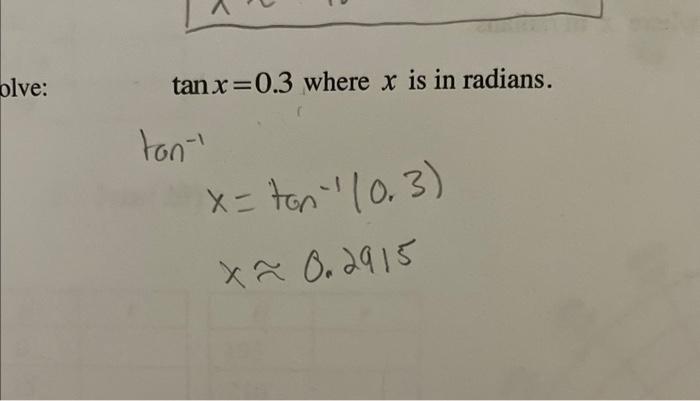 olve: tan x = 0.3 where x is in radians.
tan⁻¹
x = tan⁻¹(0.3)
x ≈ 0.2915